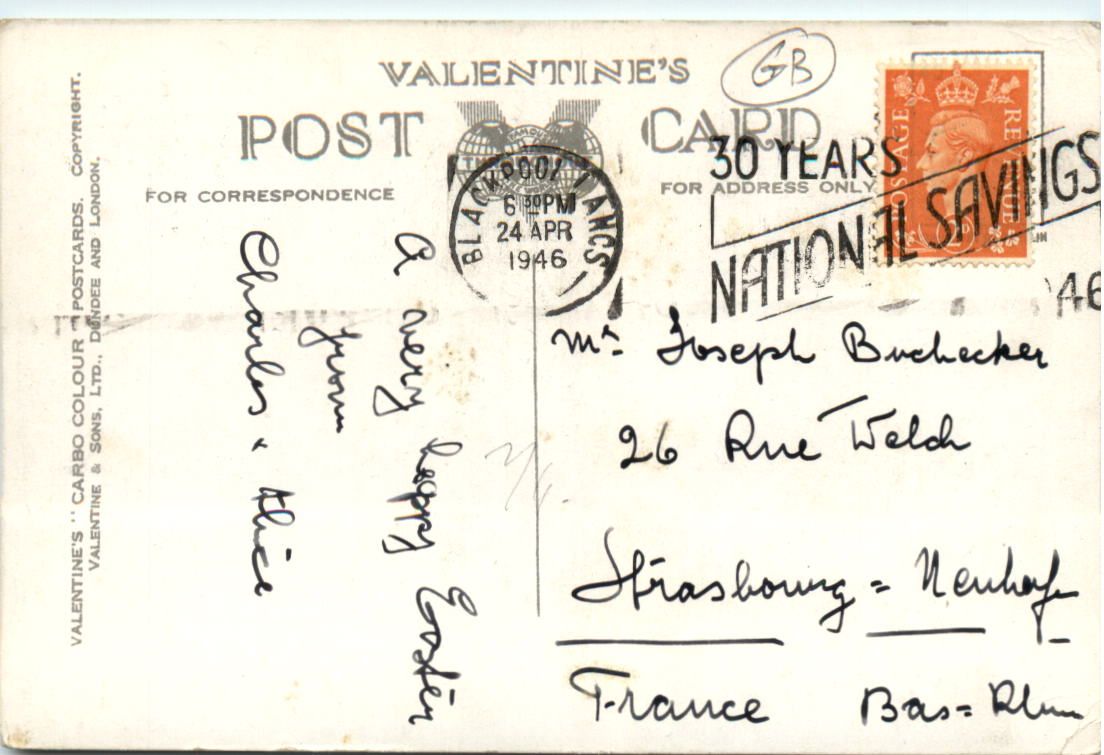 VALENTINE'S
GB
POST CARD
FOR CORRESPONDENCE
FOR ADDRESS ONLY
BLACKPOOL LANCS
6 30 PM
24 APR
1946
30 YEARS
NATIONAL SAVINGS
POSTAGE REVENUE
VALENTINE'S "CARBO COLOUR" POSTCARDS. COPYRIGHT.
VALENTINE & SONS, LTD., DUNDEE AND LONDON.
A very happy Easter
from
Charles & Alice
Mr. Joseph Buchecker
26 Rue Welch
Strasbourg = Neuhof
France Bas = Rhin